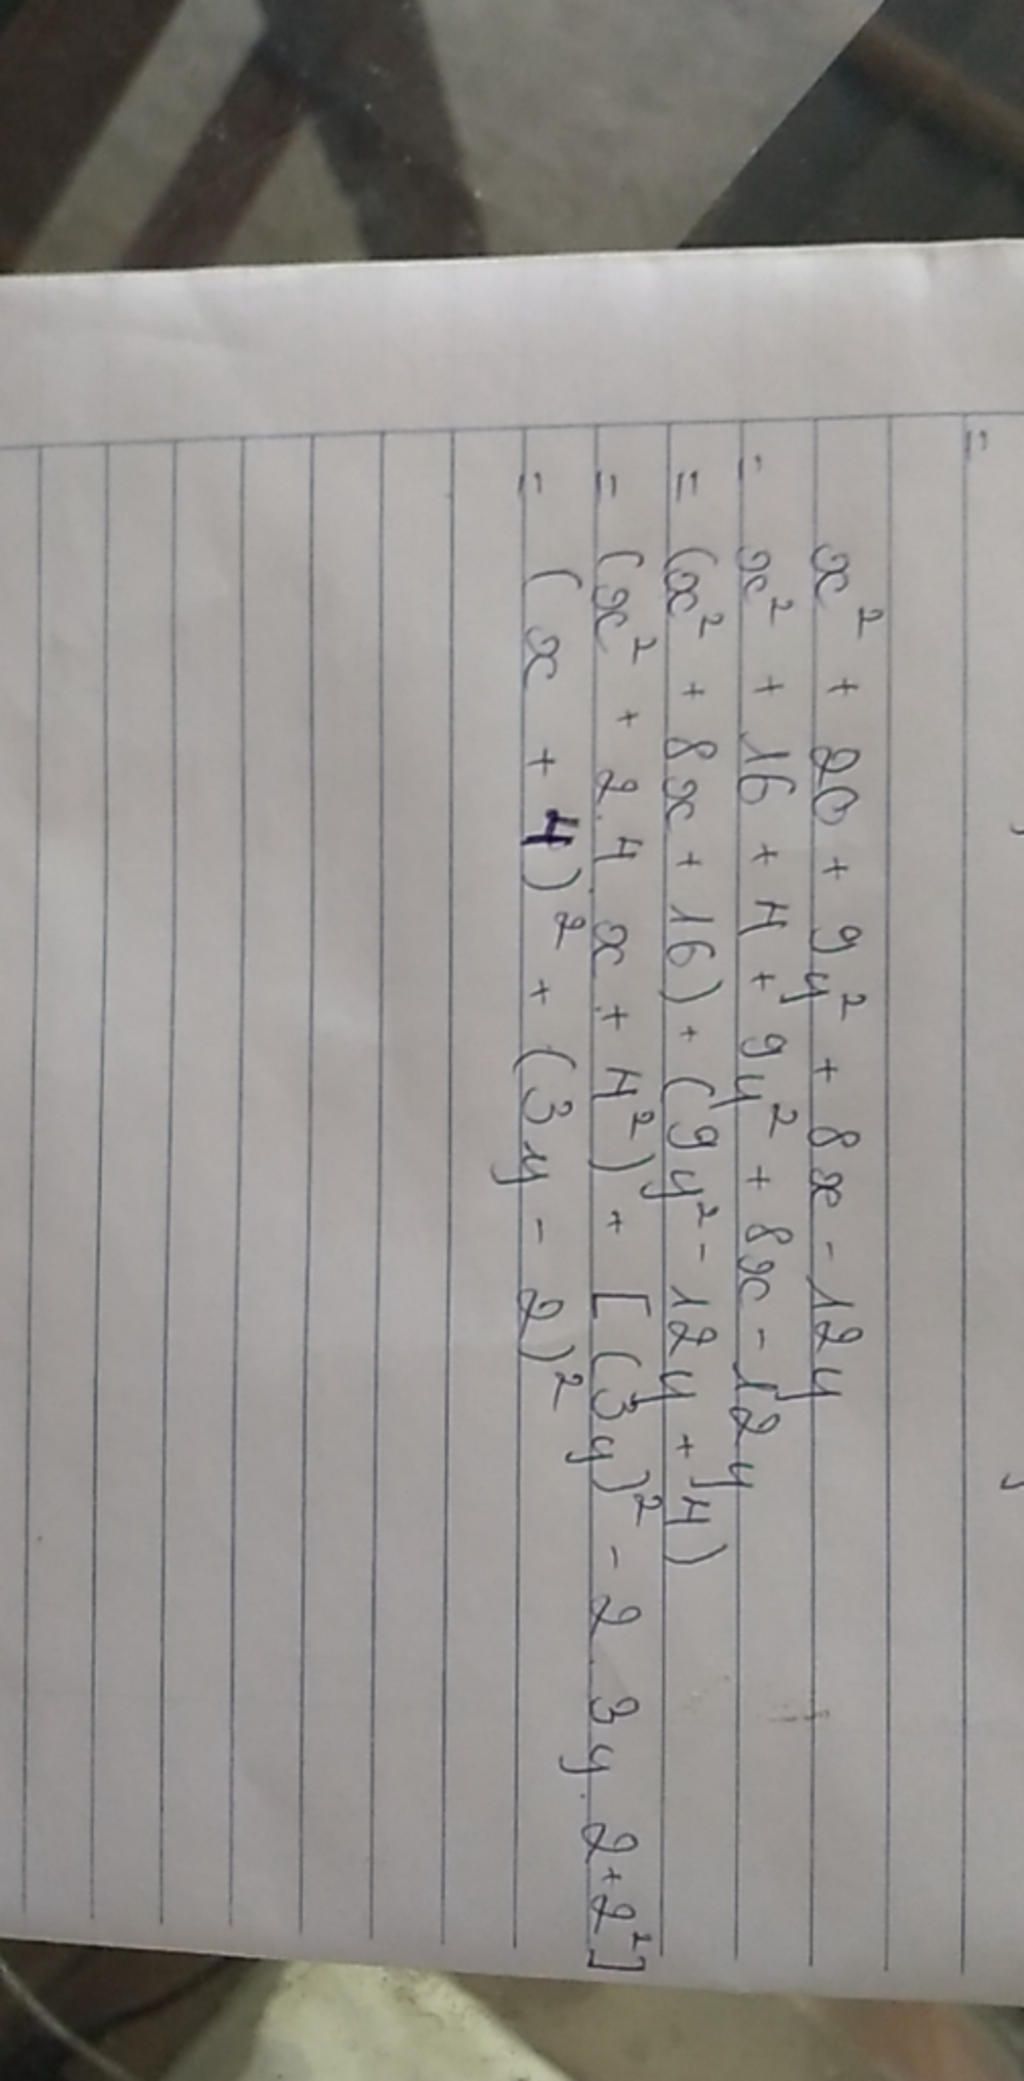 =
x² + 20 + 9y² + 8x - 12y
= x² + 16 + 4 + 9y² + 8x - 12y
= (x² + 8x + 16) + (9y² - 12y + 4)
= (x² + 2.4.x + 4²) + [(3y)² - 2.3y.2+2²]
= (x + 4)² + (3y - 2)²